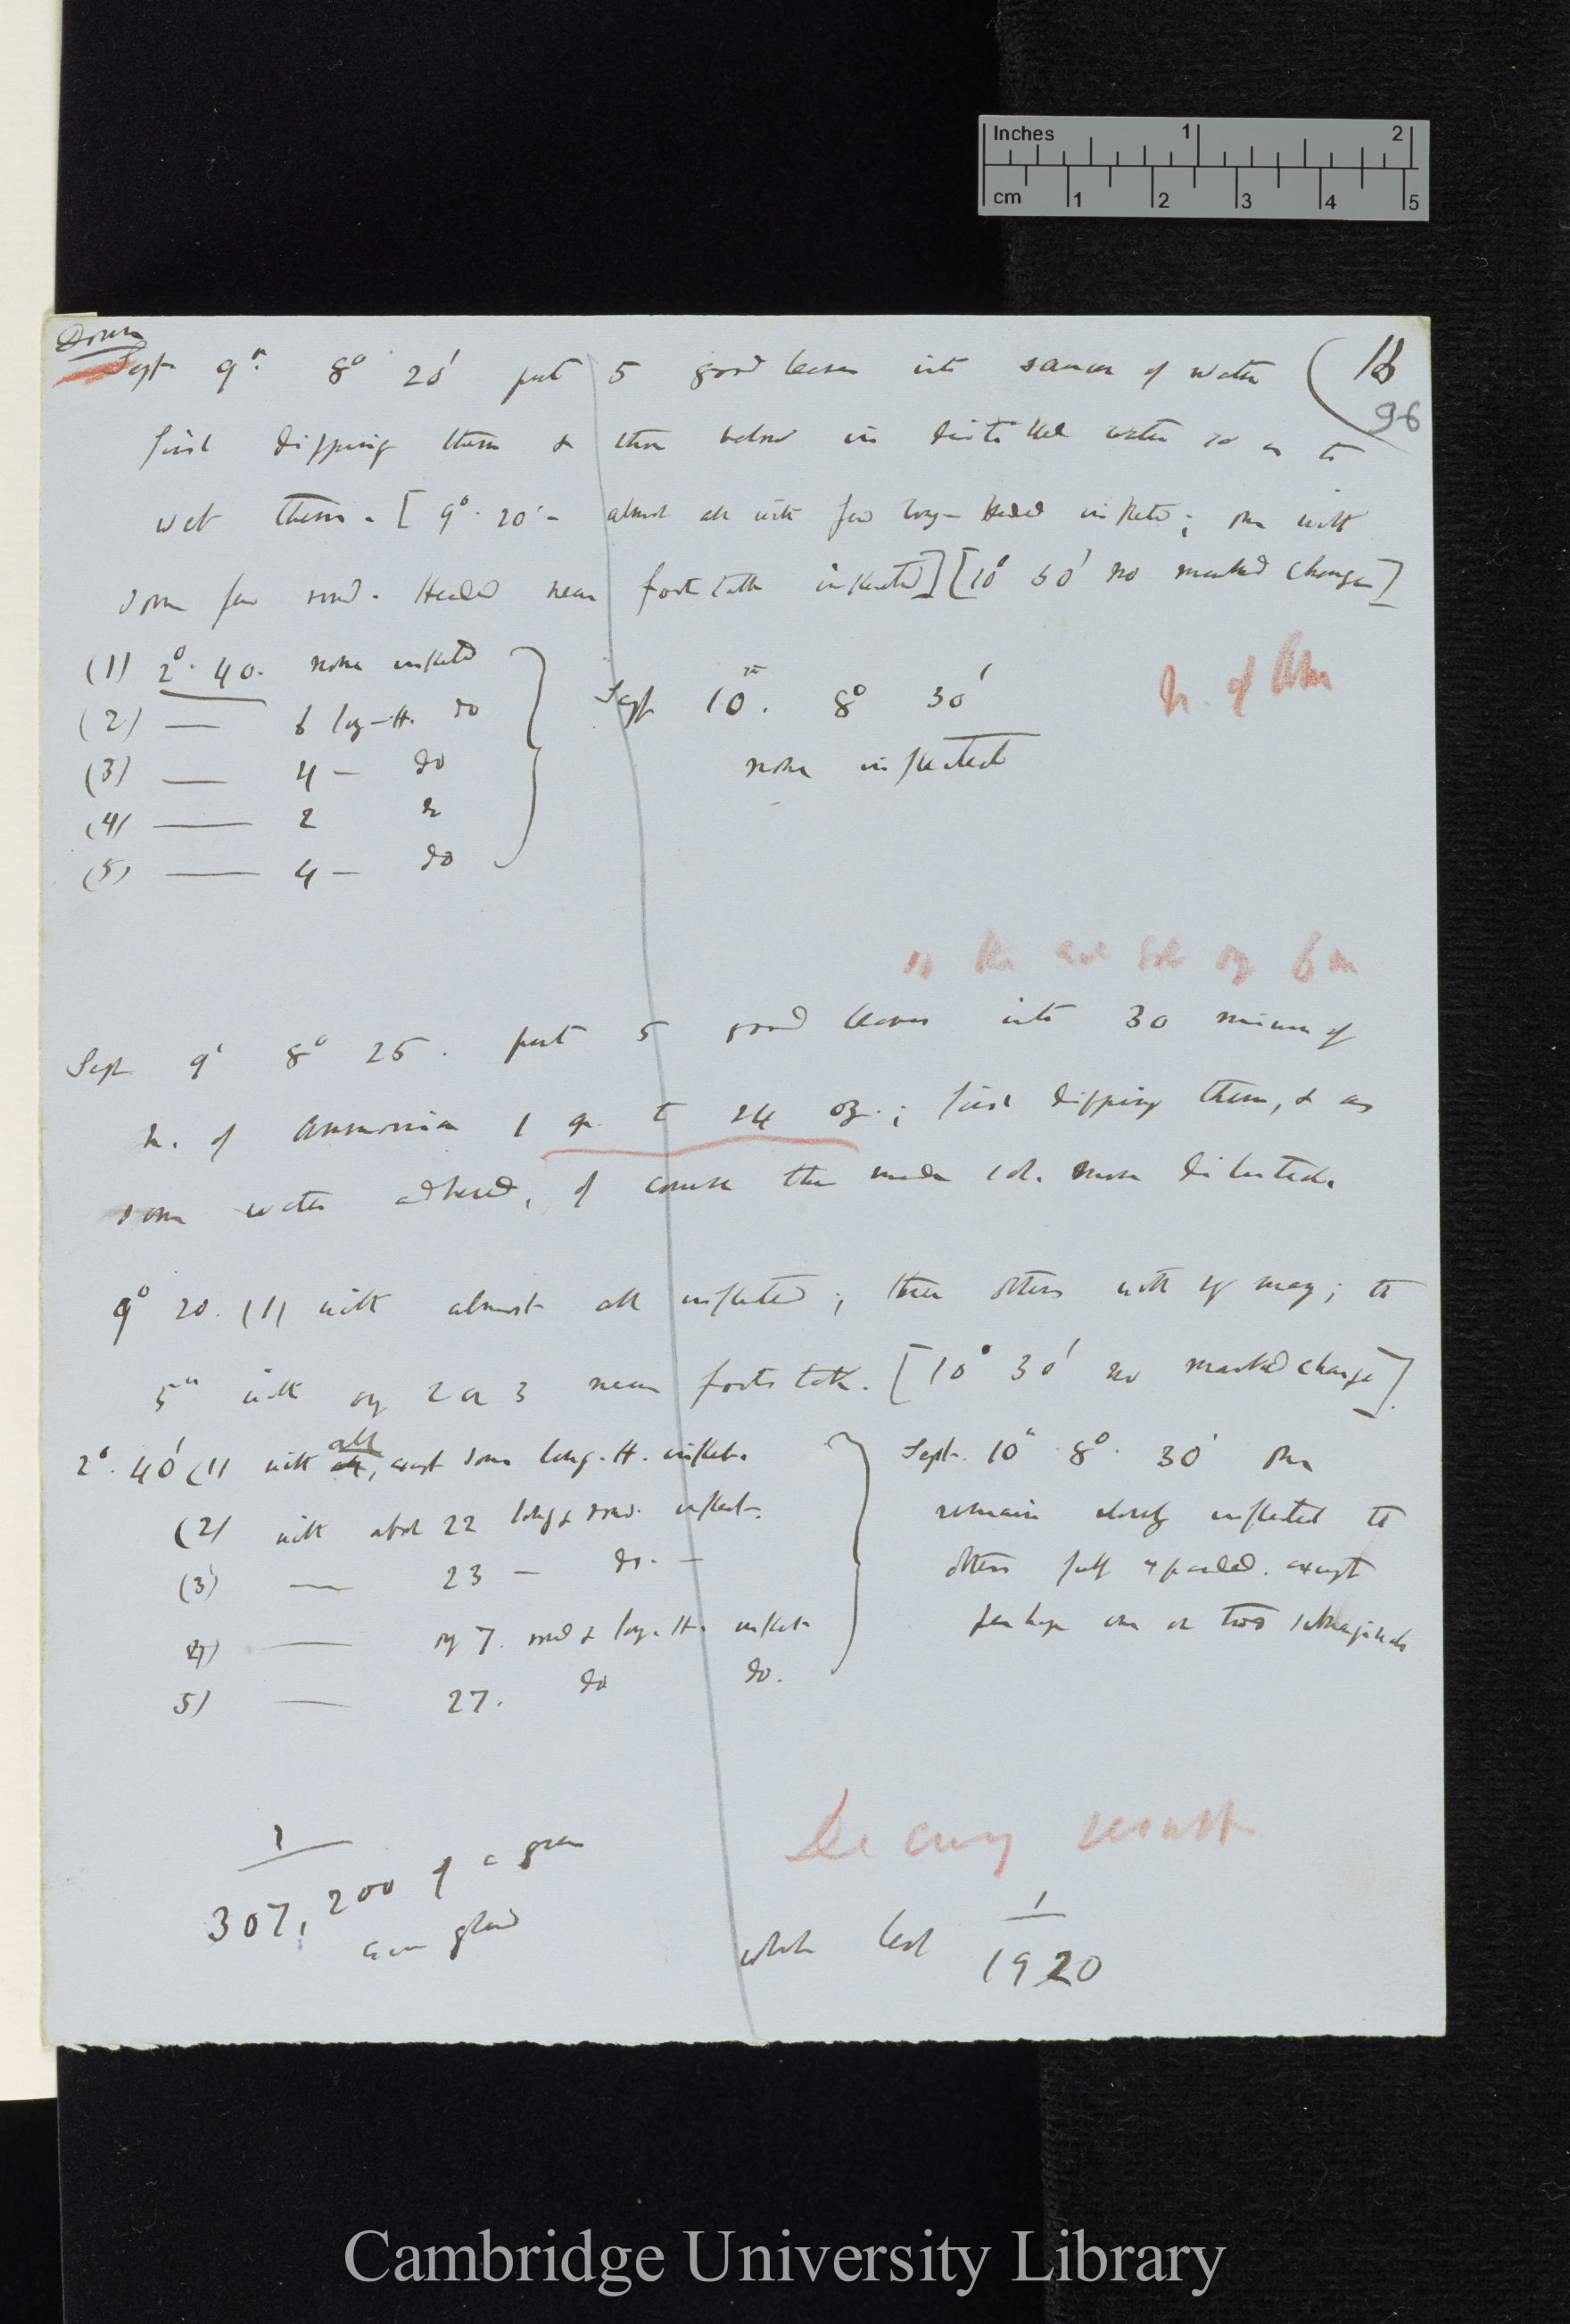 Inches 1 2
cm 1 2 3 4 5
Down
Sept 9th. 8° 20' put 5 good leaves into saucer of water (18
96
first dipping them & then below in distilled water so as to
wet them. [9°. 20' - almost all with few long-Headed inflected; one with
some few round-Headed near footstalk inflected] [10° 30' no marked change]
(1) 2°. 40. none inflected
(2) — 6 long-H. do
(3) — 4 — do
(4) — 2 do
(5) — 4 — do
Sept 10th. 8° 30'
none inflected
N. of Am
Sept 9' 8° 25. put 5 good leaves into 30 minims of
N. of Ammonia 1 gr. to 24 oz.; first dipping them, & as
some water adhered, of course this made sol. more diluted.
9° 20. (1) with almost all inflected; three others with very many; the
5th with only 2 or 3 near footstalk. [10° 30' no marked change].
2°. 40' (1) with all, except some long-H. inflect.
(2) with about 22 long & round. inflect.
(3) — 23 — do. —
4) — only 7. round & long-H. inflect
5) — 27. do do.
Sept. 10th 8°. 30' One
remain closely inflected the
others fully expanded. except
perhaps one or two submarginals
1
307,200 of a grain
each gland
whole leaf 1
1920